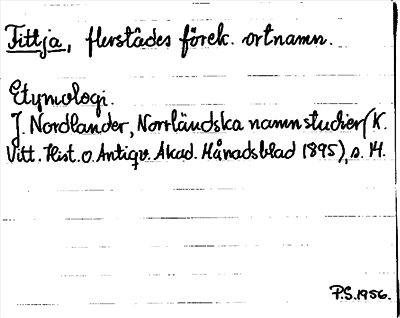 Fittja, flerstädes förek. ortnamn.
Etymologi.
J. Nordlander, Norrländska namnstudier (K.
Vitt. Hist. o. Antiqv. Akad. Månadsblad 1895), s. 14.
P.S. 1956.